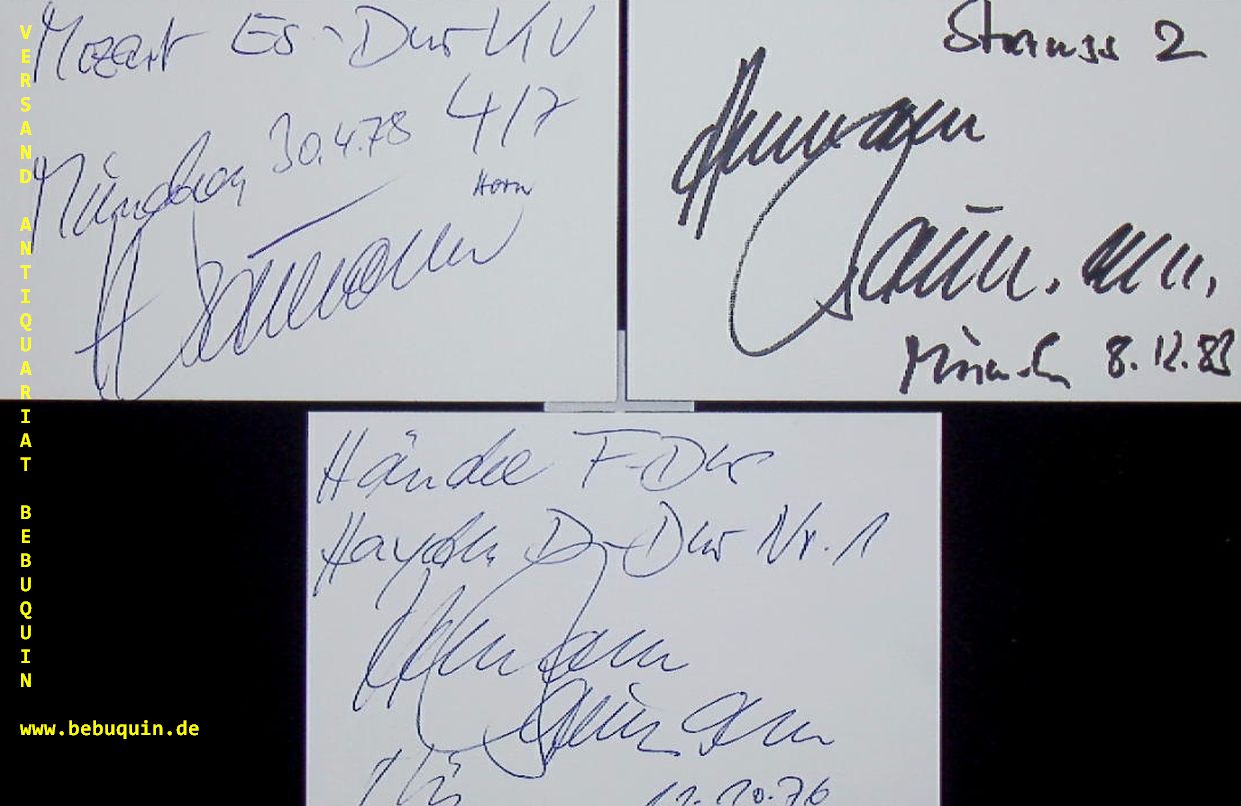 Mozart Es-Dur KV
417
München 30.4.78
Horn
H Baumann
Strauss 2
Hermann
Baumann
München 8.12.83
Händel F-Dur
Haydn D-Dur Nr. 1
Hermann
Baumann
12.10.76
VERSAND ANTIQUARIAT BEBUQUIN
www.bebuquin.de